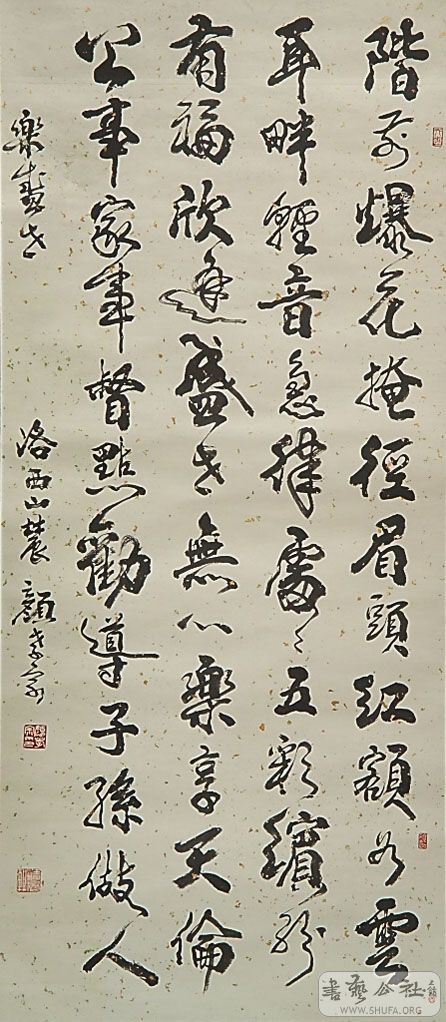 階前爆花掩徑眉頭紅額如雲
耳畔輕音急律處々五彩繽紛
有福欣逢盛世無心樂享天倫
公事家事督點勸導子孫做人
樂盛世 洛西山農顏
書藝公社
WWW.SHUFA.ORG